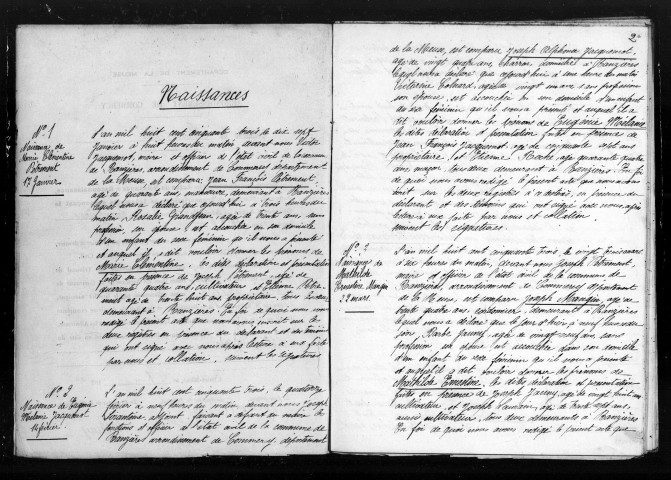 Naissances
N° 1
Naissance de
Marie Clémentine
Petrement
17 Janvier
L'an mil huit cent cinquante trois le dix sept
Janvier à huit heures du matin devant nous Victor
Jacquemot, maire et officier de l'état civil de la commune
de Ranzières, arrondissement de Commercy département
de la Meuse est comparu Jean François Petrement,
agé de quarante ans, manœuvre, demeurant à Ranzières
lequel nous a déclaré que ajourd'hui à trois heures du
matin, Rosalie Grandjean, agée de trente ans, sans
profession, son épouse est accouchée en son domicile
d'un enfant du sexe féminin qu'il nous a présenté
et auquel il a dit vouloir donner les prénoms de
Marie Clémentine. Les dites déclaration et présentation
faites en présence de Joseph Petrement, agé de
quarante quatre ans, cultivateur, et Etienne
agé de trente huit ans, propriétaire, tous les deux
demeurant à Ranzières. En foi de quoi nous avons
rédigé le présent acte que nous avons inscrit sur les
deux registres en présence du déclarant et des témoins
qui ont signé avec nous après lecture à eux faite
par nous et collation. suivent les signatures
N° 2
Naissance de Eugénie
Mélanie Jacquemot
14 février
L'an mil huit cent cinquante trois, le quatorze
février à neuf heures du matin devant nous Joseph
adjoint, faisant à défaut du maire les
fonctions d'officier de l'état civil de la commune de
Ranzières arrondissement de Commercy, département
2
de la Meuse, est comparu Joseph Alphonse Jacquemot,
agé de vingt quatre ans, charron, domicilié à Ranzières
lequel nous a déclaré que ajourd'hui à deux heures du matin
Victorine agée de vingt un ans sans profession
son épouse, est accouchée en son domicile d'un enfant
du sexe féminin qu'il nous a présenté et auquel il a
dit vouloir donner les prénoms de Eugénie Mélanie
les dites déclaration et présentation faites en présence de
Jean François Jacquemot, agé de cinquante sept ans,
propriétaire, et Etienne agé de quarante quatre
ans, maçon tous deux demeurant à Ranzières. En foi
de quoi nous avons rédigé le présent acte que nous avons inscrit
sur les deux registres à ce destinés, en présence du
déclarant et des témoins qui ont signé avec nous après
lecture à eux faite par nous et collation.
suivent les signatures
N° 3
Naissance de
Mathilde
Ernestine Mangin
22 mars
L'an mil huit cent cinquante trois, le vingt trois mars
à six heures du matin, devant nous Joseph Petrement,
maire et officier de l'état civil de la commune de
Ranzières, arrondissement de Commercy département
de la Meuse, est comparu Joseph Mangin, agé de
trente quatre ans, cordonnier, demeurant à Ranzières
lequel nous a déclaré que le jour d'hier, à neuf heures du
soir, Marie Jeanny, agée de vingt neuf ans sans
profession, son épouse est accouchée dans son domicile
d'un enfant du sexe féminin qu'il nous a présenté
et auquel il a dit vouloir donner les prénoms de
Mathilde Ernestine, les dites déclaration et présentation
faites en présence de Joseph Jeanny, agé de vingt huit ans
cultivateur, et Joseph agé de trente sept ans,
aussi cultivateur, tous deux demeurant à Ranzières
En foi de quoi nous avons rédigé le présent acte que